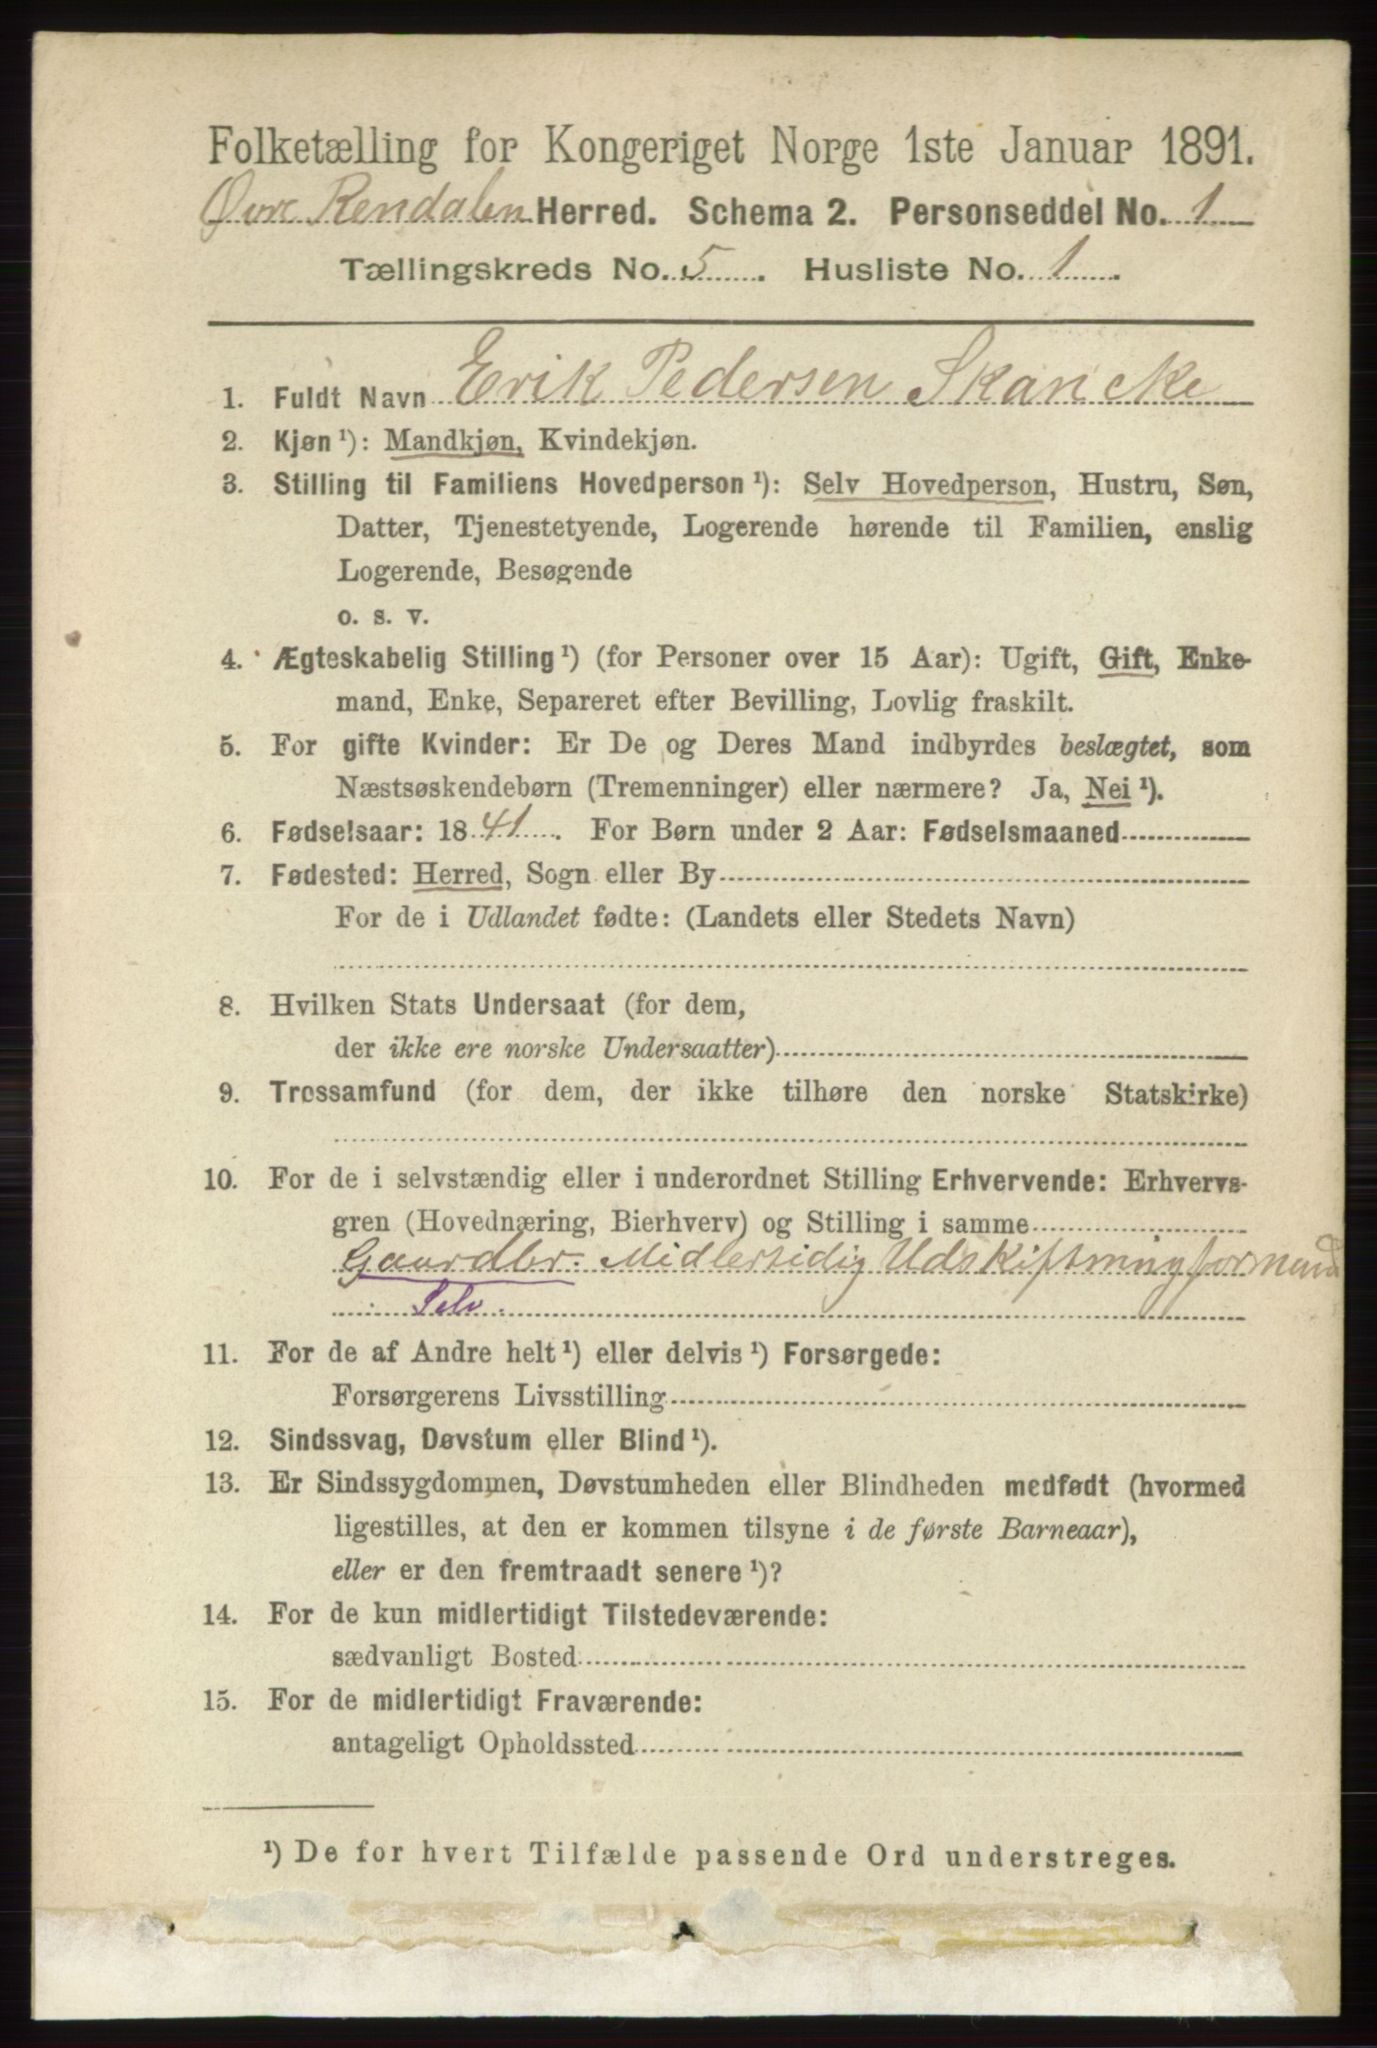 Folketælling for Kongeriget Norge 1ste Januar 1891.
Øvre Rendalen Herred. Schema 2. Personseddel No. 1
Tællingskreds No. 5. Husliste No. 1.
1. Fuldt Navn Erik Pedersen Skancke
2. Kjøn ¹): Mandkjøn, Kvindekjøn.
3. Stilling til Familiens Hovedperson ¹): Selv Hovedperson, Hustru, Søn,
Datter, Tjenestetyende, Logerende hørende til Familien, enslig
Logerende, Besøgende
o. s. v.
4. Ægteskabelig Stilling ¹) (for Personer over 15 Aar): Ugift, Gift, Enke-
mand, Enke, Separeret efter Bevilling, Lovlig fraskilt.
5. For gifte Kvinder: Er De og Deres Mand indbyrdes beslægtet, som
Næstsøskendebørn (Tremenninger) eller nærmere? Ja, Nei ¹).
6. Fødselsaar: 1841. For Børn under 2 Aar: Fødselsmaaned
7. Fødested: Herred, Sogn eller By
For de i Udlandet fødte: (Landets eller Stedets Navn)
8. Hvilken Stats Undersaat (for dem,
der ikke ere norske Undersaatter)
9. Trossamfund (for dem, der ikke tilhøre den norske Statskirke)
10. For de i selvstændig eller i underordnet Stilling Erhvervende: Erhvervs-
gren (Hovednæring, Bierhverv) og Stilling i samme
Gaardbr. Midlertidig Udskiftningformand
Selv.
11. For de af Andre helt ¹) eller delvis ¹) Forsørgede:
Forsørgerens Livsstilling
12. Sindssvag, Døvstum eller Blind ¹).
13. Er Sindssygdommen, Døvstumheden eller Blindheden medfødt (hvormed
ligestilles, at den er kommen tilsyne i de første Barneaar),
eller er den fremtraadt senere ¹)?
14. For de kun midlertidigt Tilstedeværende:
sædvanligt Bosted
15. For de midlertidigt Fraværende:
antageligt Opholdssted
¹) De for hvert Tilfælde passende Ord understreges.